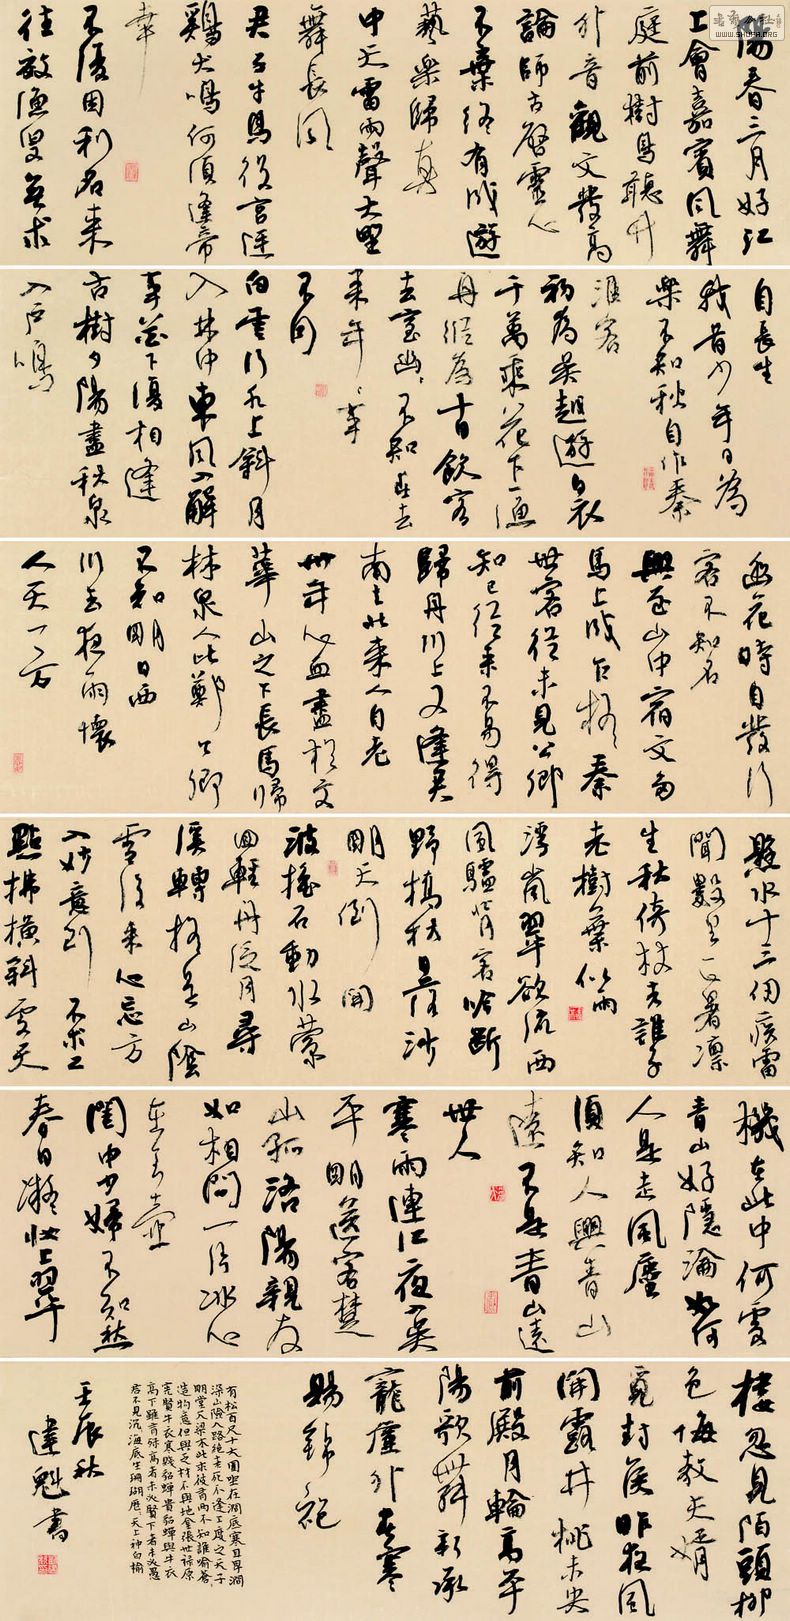 陽春三月好江
工會嘉賓風舞
庭前樹鳥聽竹
外音觀文發高
論師古啓靈心
不棄終有成遊
藝樂歸真
中天雷雨聲大野
舞長風
君子牛馬役言逐
鷄犬鳴何須逢帝
不復因利名來
往漁叟無求
自長生
我昔少年日為
樂不知秋自作秦
涯客
初為吳越遊白衣
千萬乘花下一漁
舟縱為十日飲客
去空幽幽不知春去
來年年
不同
白雲行水上斜月
入林中東風入解
事花下復相逢
古樹夕陽盡秋泉
入戶鳴
幽花時自發行
客不知名
興至山中宿文多
馬上成秦
世客從未見公卿
知己從來不易得
歸舟川上又逢君
南去北來人自老
卅年心血盡於文
華山之下長馬歸
林泉人比鄭公卿
不知明日西
川去夜雨懷
人天一方
懸水十三仞疾雷
聞數里六暑凜
生秋倚杖者誰子
老樹葉似雨
浮嵐翠欲流西
風驢背客吟斷
野橋秋日落沙
明天倒開
波搖石動水縈
回輕舟泛月尋
溪轉疑是山陰
雪後來心忘方
入妙意到不求工
點拂橫斜處天
機在此中何處
青山好隱淪如何
人是走風塵
須知人與青山
遠不是青山遠
世人
寒雨連江夜入吳
平明送客楚
山孤洛陽親友
如相問一片冰心
在玉壺
閨中少婦不知愁
春日凝妝上翠
樓忽見陌頭柳
色悔教夫婿
覓封侯昨夜風
開露井桃未央
前殿月輪高平
陽歌舞新承
寵簾外春寒
賜錦袍
有松百尺大十圍坐在澗底寒且卑澗
深山險人路絕老死不逢工度之天子
明堂欠梁木此求彼有兩不知誰喻蒼
造物意但與之材不與地金張世祿原
憲賢牛衣寒賤貂蟬貴貂蟬與牛衣
高下雖有殊高者未必賢下者未必愚
君不見沉海底生珊瑚歷天上種白榆
壬辰秋
達魁書
WWW.SHUFA.ORG